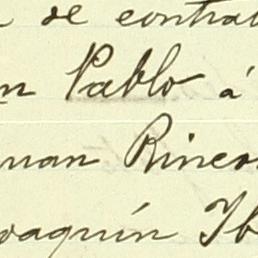 de contrat
n Pablo á
uan Rincon
oaquín Ib